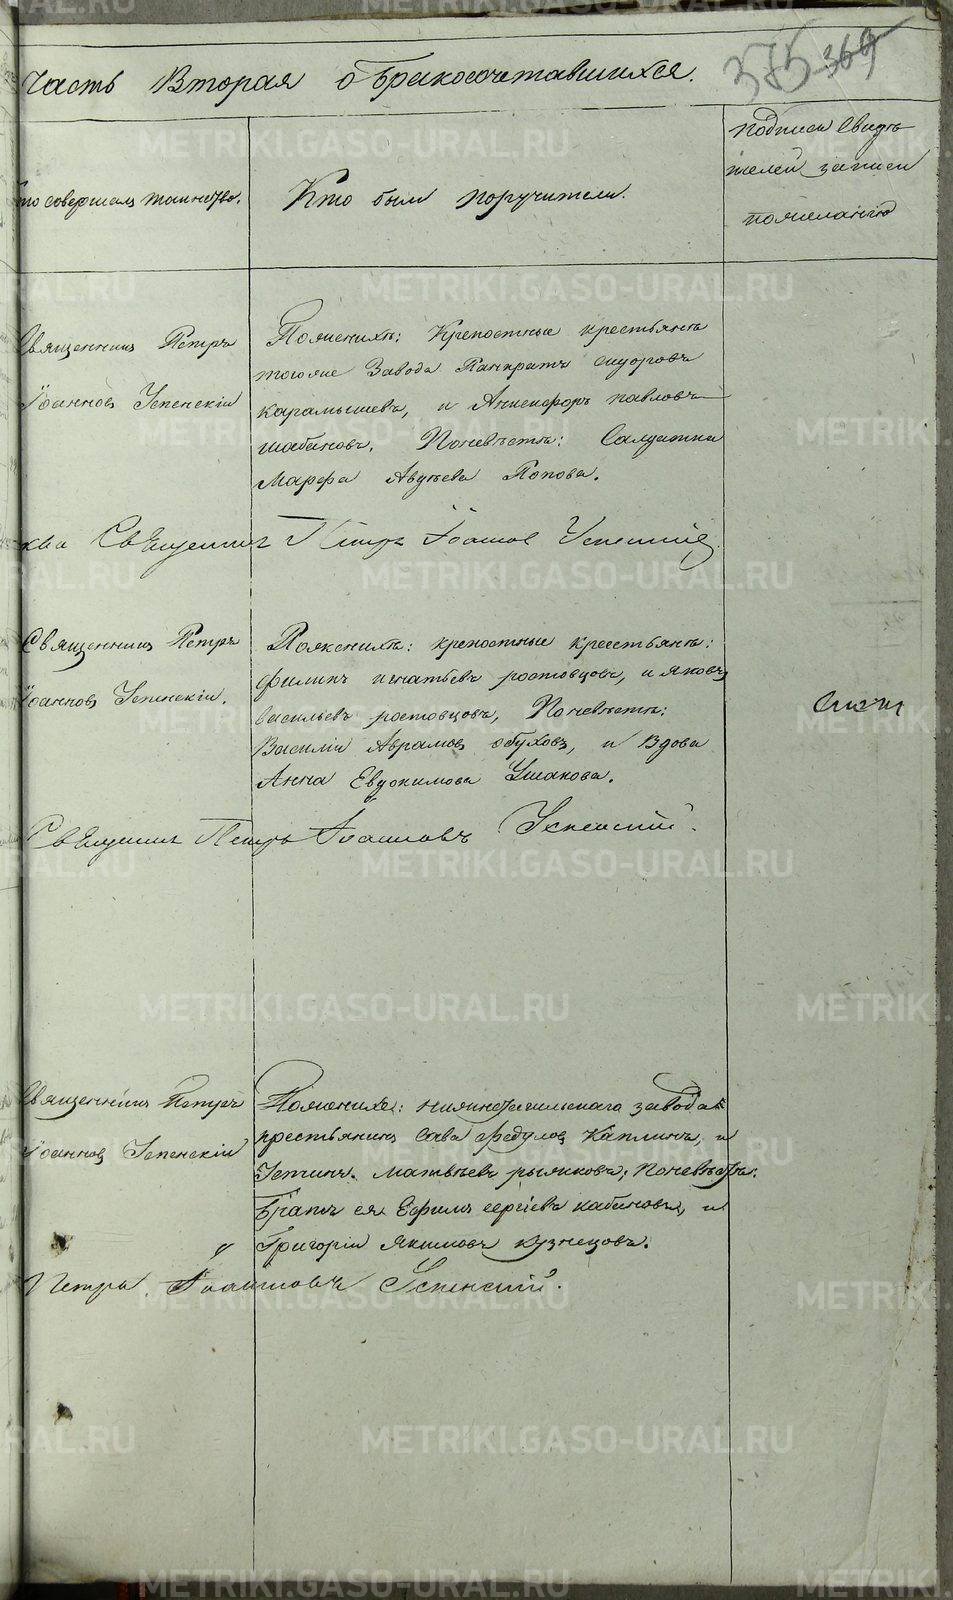 375 369
Часть Вторая о бракосочетавшихся.
то совершалъ таинство.
Кто были поручители.
подписи свидѣ-
телей записи
пожеланію
Священникъ Петръ
Іоанновъ Успенскій
Поженихѣ: Крепостные крестьяне
тогоже Завода Панкратъ
Карамышевъ, и Аникифоръ павловъ
шабановъ. Поневѣстѣ: Салдатка
Марфа Авдѣева Попова.
Священникъ Петръ Іоанновъ Успенскій
Священникъ Петръ
Іоанновъ Успенскій.
Поженихѣ: крепостные крестьяне:
филипъ игнатьевъ ростовцовъ, и яковъ
васильевъ ростовцовъ, Поневѣстѣ:
Василій Аврамовъ обуховъ, и Вдова
Анна Евдокимова Ушакова.
Священникъ Петръ Іоанновъ Успенскій.
Священникъ Петръ
Іоанновъ Успенскій
Поженихѣ: нижнетагильскаго завода
крестьянинъ Сава Федуловъ Каплинъ, и
Устинъ Матвѣевъ рыжковъ; Поневѣстѣ:
Братъ ея Ефимъ сергіевъ кабановъ, и
Григорій Якимовъ кузнецовъ.
Петръ Іоанновъ Успенскій.
METRIKI.GASO-URAL.RU